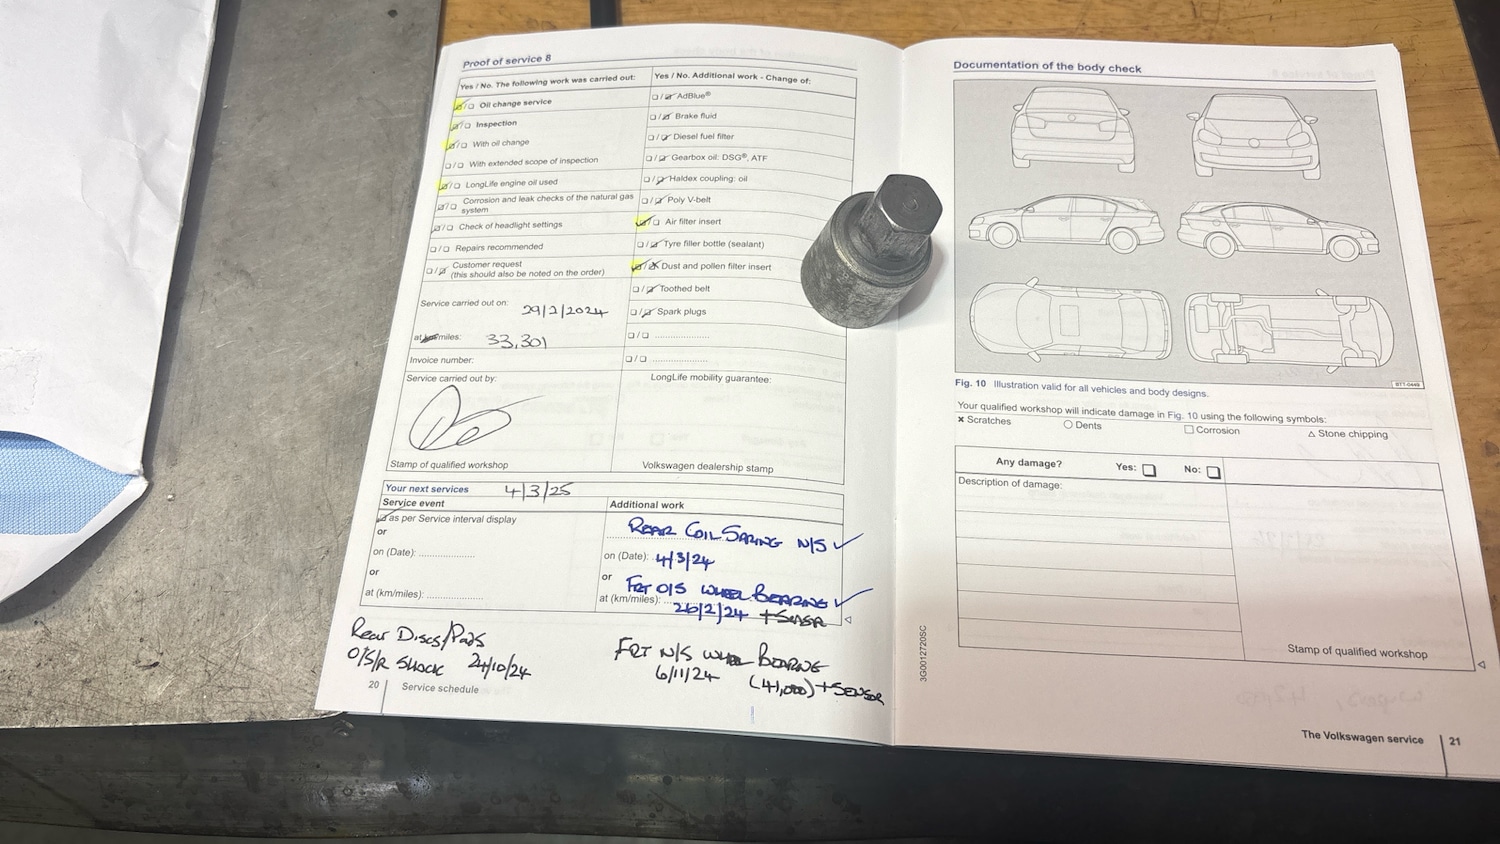 Proof of service 8
Yes / No. The following work was carried out:
Oil change service
Inspection
With oil change
With extended scope of inspection
LongLife engine oil used
Corrosion and leak checks of the natural gas
system
Check of headlight settings
Repairs recommended
Customer request
(this should also be noted on the order)
Yes / No. Additional work - Change of:
AdBlue®
Brake fluid
Diesel fuel filter
Gearbox oil: DSG®, ATF
Haldex coupling: oil
Poly V-belt
Air filter insert
Tyre filler bottle (sealant)
Dust and pollen filter insert
Toothed belt
Spark plugs
Service carried out on: 29/2/2024
at miles: 33,301
Invoice number:
Service carried out by:
Stamp of qualified workshop
LongLife mobility guarantee:
Volkswagen dealership stamp
Your next services 4/3/25
Service event
as per Service interval display
or
on (Date):
or
at (km/miles):
Additional work
REAR COIL SPRING N/S ✓
on (Date): 4/3/24
or FRT O/S WHEEL BEARING ✓
at (km/miles): 26/2/24 + SENSR
Rear Discs/Pads
O/S/R SHOCK 24/10/24
FRT N/S WHEEL BEARING
6/11/24 (41,000) + SENSOR
20 Service schedule
Documentation of the body check
BTT-0449
Fig. 10 Illustration valid for all vehicles and body designs.
Your qualified workshop will indicate damage in Fig. 10 using the following symbols:
× Scratches ○ Dents □ Corrosion △ Stone chipping
Any damage? Yes: □ No: □
Description of damage:
Stamp of qualified workshop
3G0012720SC
The Volkswagen service 21